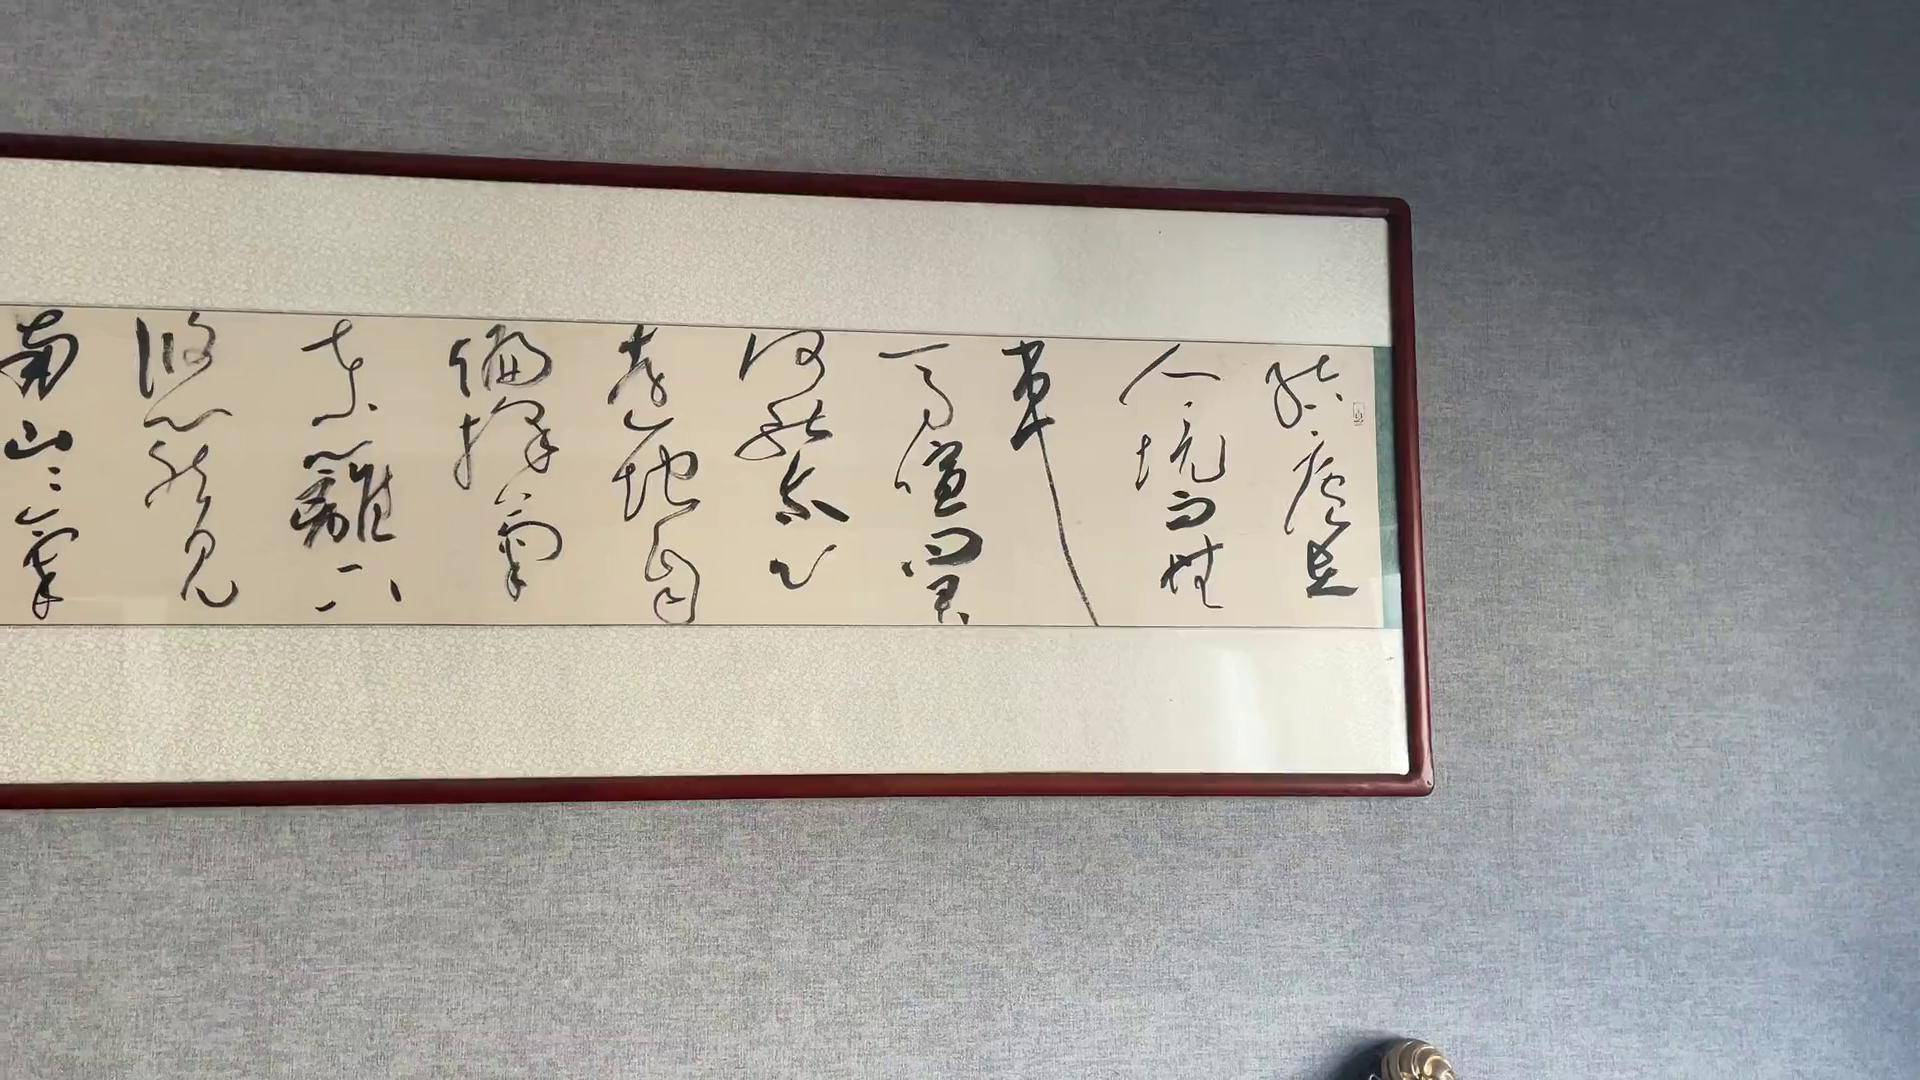 結廬在
人境而無
車
馬喧問君
何能爾心
遠地自
偏採菊
東籬下
悠然見
南山〻氣